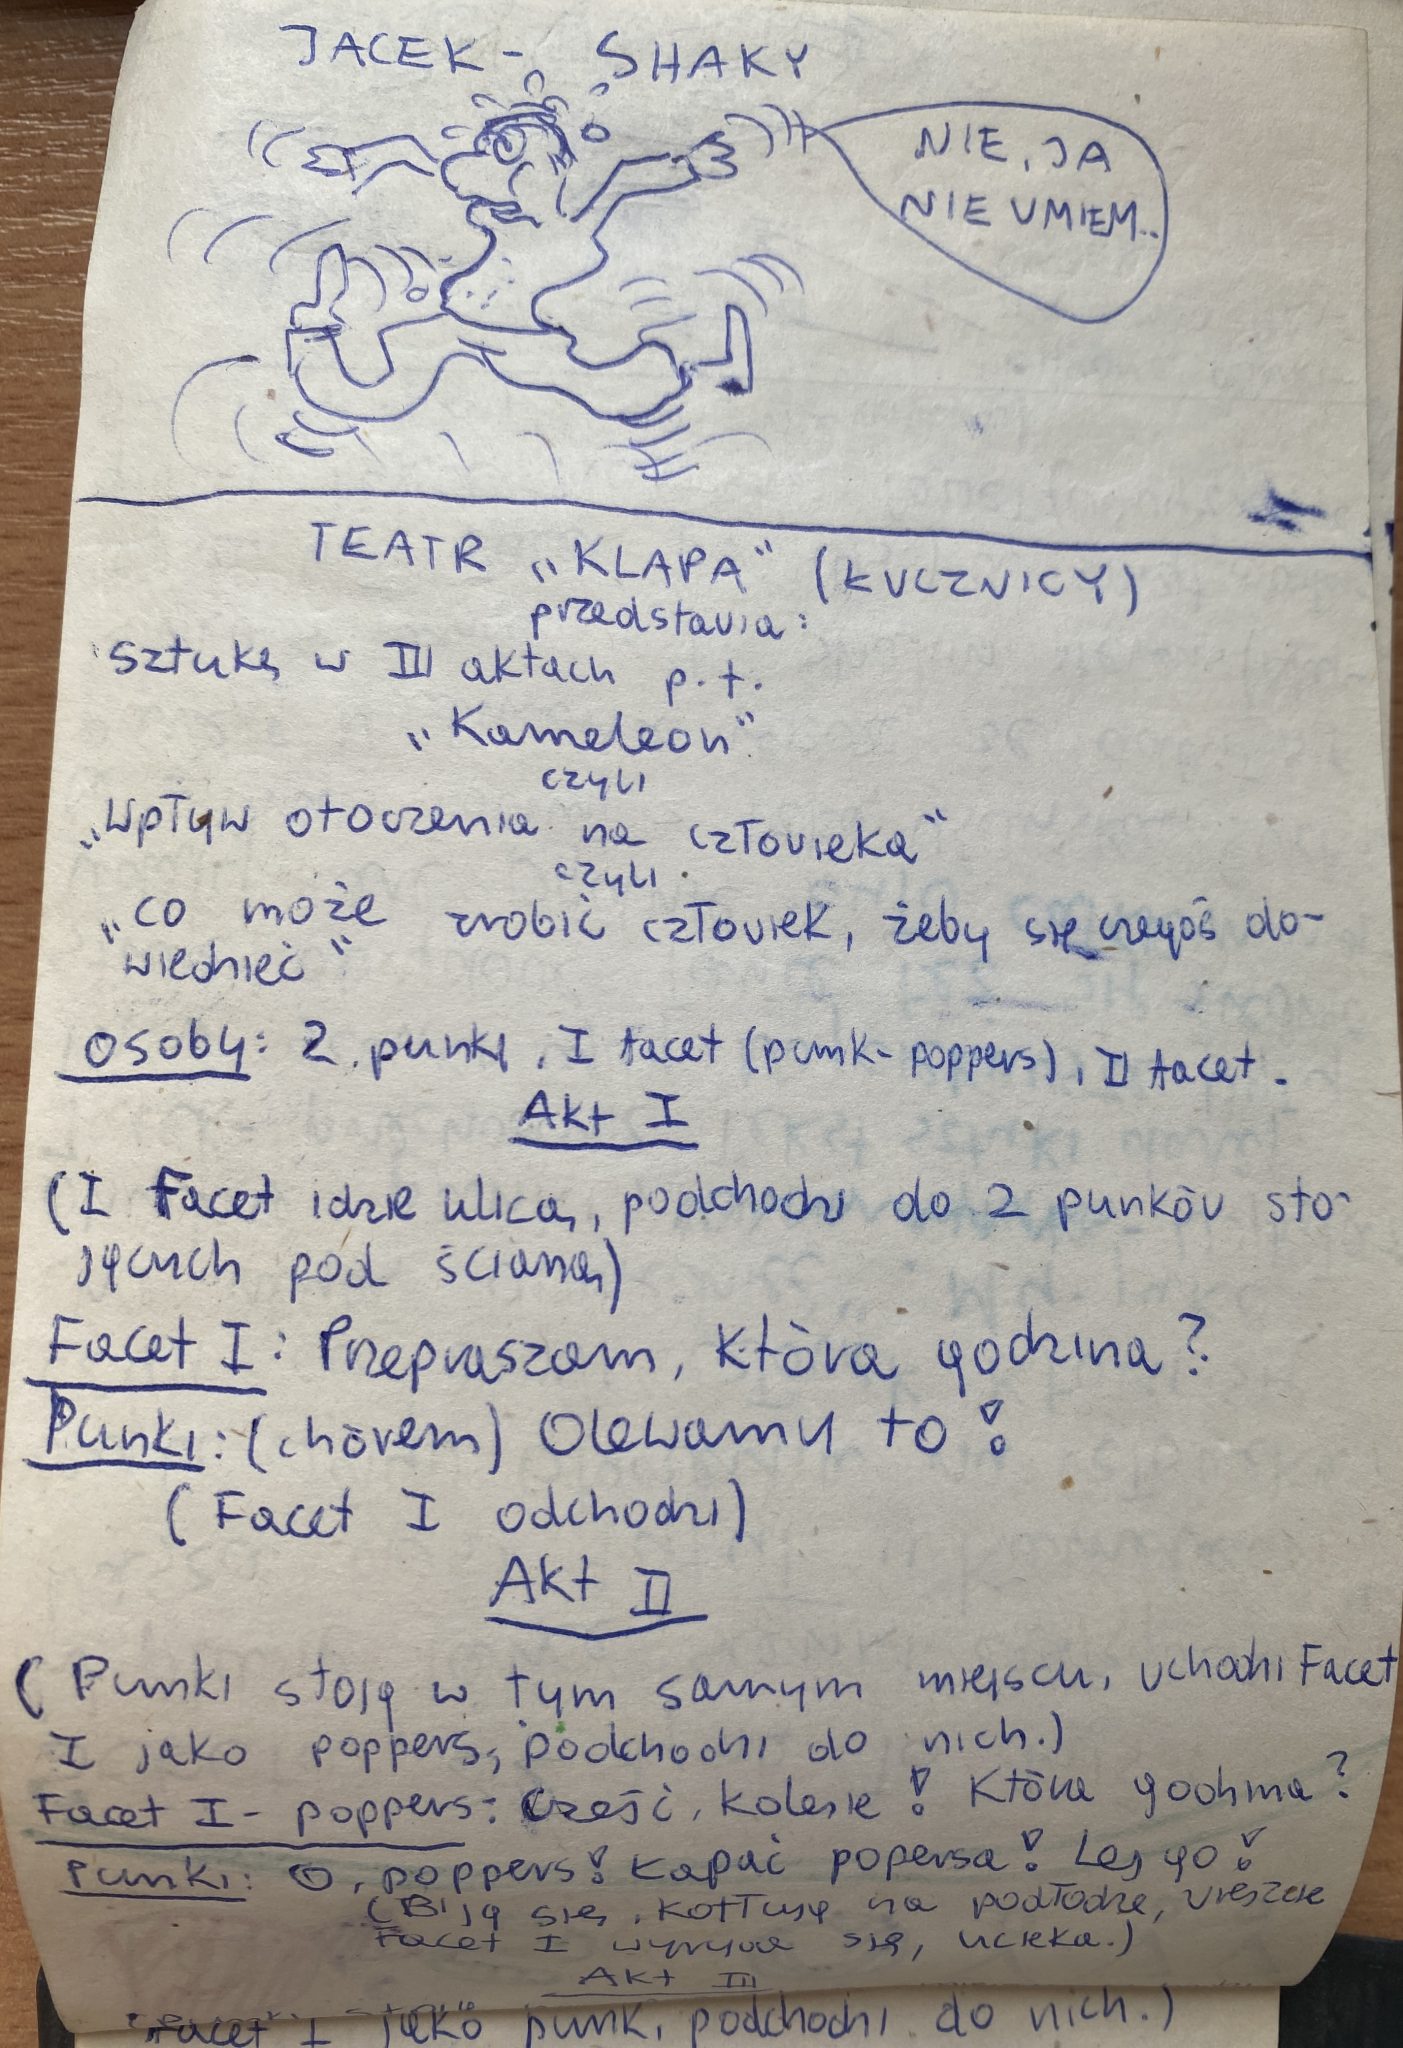 JACEK - SHAKY
NIE, JA
NIE UMIEM..
TEATR „KLAPA" (KUCZNICY)
przedstawia:
Sztukę w III aktach p.t.
„Kameleon"
czyli
„Wpływ otoczenia na człowieka"
czyli
„co może zrobić człowiek, żeby się czegoś do-
wiedzieć"
Osoby: 2 punki, I facet (punk-poppers), II facet.
Akt I
(I Facet idzie ulicą, podchodzi do 2 punków sto-
jących pod ścianą)
Facet I: Przepraszam, która godzina?
Punki: (chórem) Olewamy to!
(Facet I odchodzi)
Akt II
(Punki stoją w tym samym miejscu, wchodzi Facet
I jako poppers, podchodzi do nich.)
Facet I - poppers: Cześć, kolesie! Która godzina?
Punki: O, poppers! Łapać popersa! Lej go!
(Biją się, kotłują na podłodze, wreszcie
Facet I wyrywa się, ucieka.)
Akt III
Facet I jako punk, podchodzi do nich.)